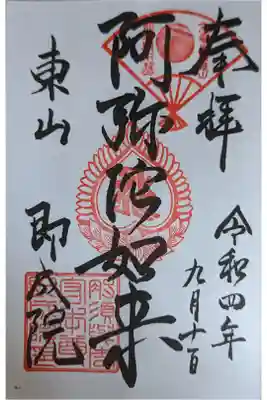 奉拝
令和四年
九月十一日
阿弥陀如来
東山
即成院